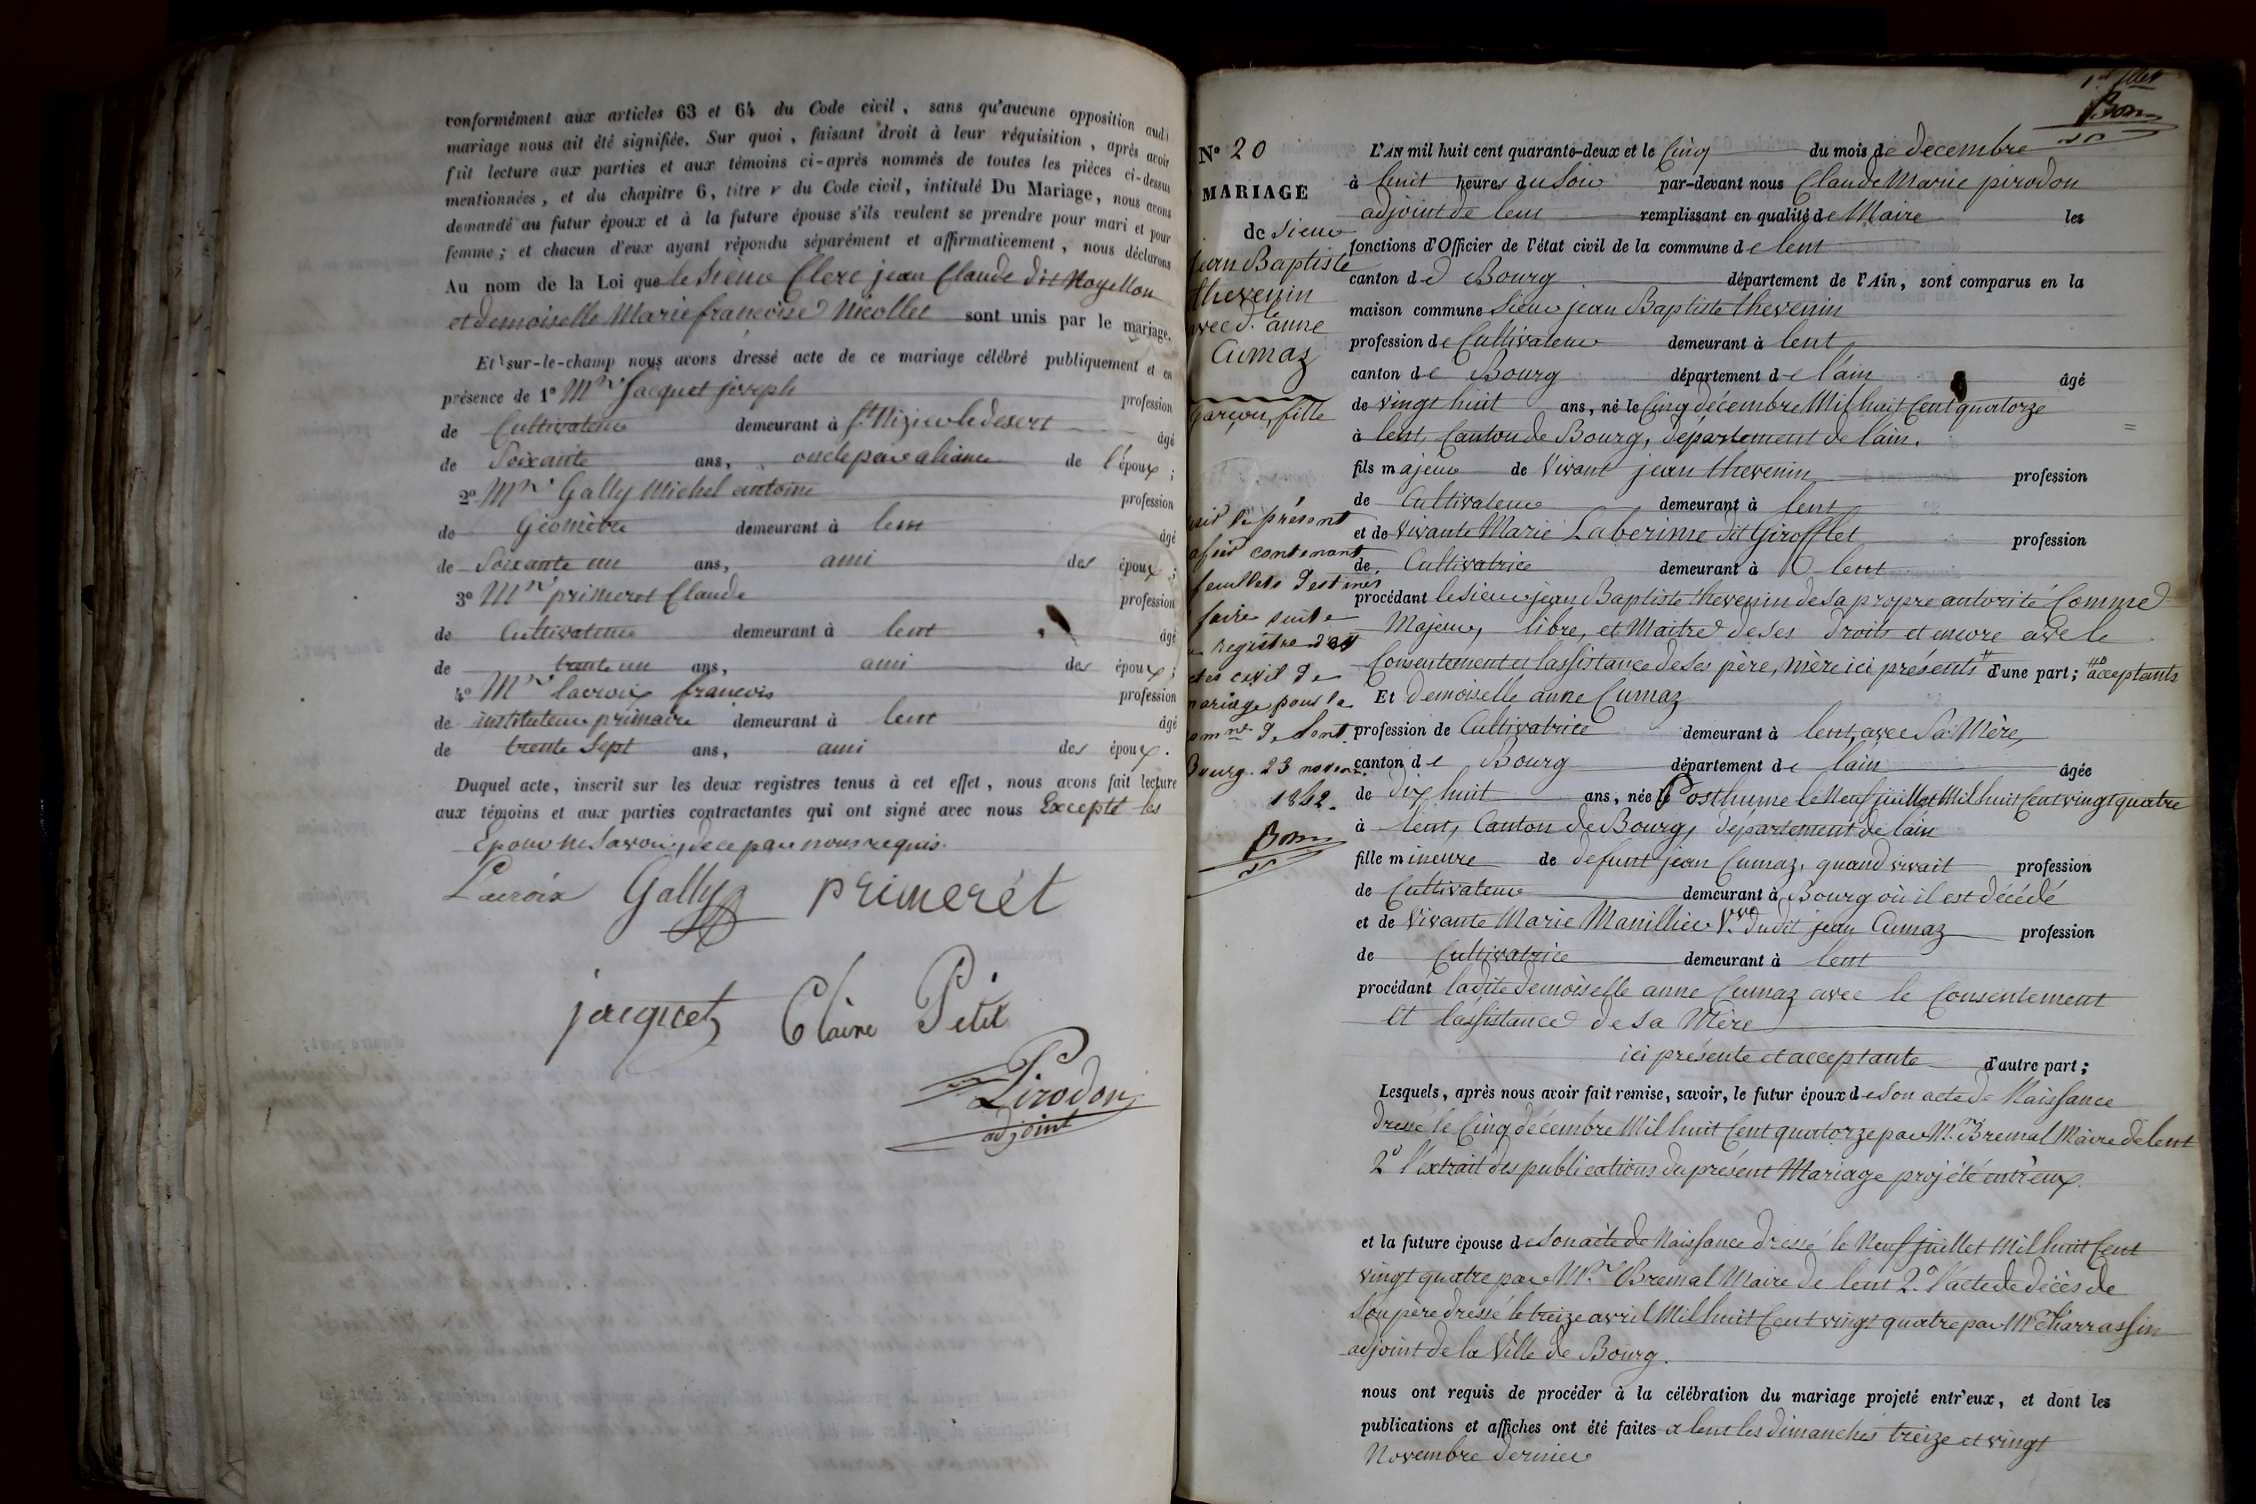 conformément aux articles 63 et 64 du Code civil, sans qu'aucune opposition audi
mariage nous ait été signifiée. Sur quoi, faisant droit à leur réquisition, après avoir
fait lecture aux parties et aux témoins ci-après nommés de toutes les pièces ci-dessus
mentionnées, et du chapitre 6, titre v du Code civil, intitulé Du Mariage, nous avons
demandé au futur époux et à la future épouse s'ils veulent se prendre pour mari et pour
femme; et chacun d'eux ayant répondu séparément et affirmativement, nous déclarons
Au nom de la Loi que le Sieur Clerc jean Claude dit Noyellon
et demoiselle Marie francoise Nicollet sont unis par le mariage.
Et sur-le-champ nous avons dressé acte de ce mariage célébré publiquement et en
présence de 1º Mr Jacquet joseph profession
de Cultivateur demeurant à St Nizier le desert âgé
de Soixante ans, oncle par aliance de l'époux;
2º Mr Gally Michel antoine profession
de Géomètre demeurant à lent âgé
de Soixante un ans, ami des époux;
3º Mr primeret Claude profession
de Cultivateur demeurant à lent âgé
de trente un ans, ami des époux;
4º Mr lacroix francois profession
de instituteur primaire demeurant à lent âgé
de trente Sept ans, ami des époux.
Duquel acte, inscrit sur les deux registres tenus à cet effet, nous avons fait lecture
aux témoins et aux parties contractantes qui ont signé avec nous Excepté les
Epoux ne Savoir, de ce par nous requis.
Lacroix Gally primerét
jacquet Claire Petit
Pirodon
adjoint
1er fllet
Bon
Nº 20
MARIAGE
de Sieur
jean Baptiste
thevenin
avec d.lle anne
Cumaz
Garçon, fille
présent
contenant
feuillets destinés
faire suite
registre des
actes civil de
mariage pour la
comne de Lent.
Bourg. 23 novem.
1842.
Bon
L'AN mil huit cent quarante-deux et le Cinq du mois de decembre
à huit heures du Soir par-devant nous Claude Marie pirodon
adjoint de lent remplissant en qualité de Maire les
fonctions d'Officier de l'état civil de la commune de lent
canton de Bourg département de l'Ain, sont comparus en la
maison commune Sieur jean Baptiste thevenin
profession de Cultivateur demeurant à lent
canton de Bourg département de l'ain âgé
de vingt huit ans, né le Cinq décembre Mil huit Cent quatorze
à lent, Canton de Bourg, département de l'ain.
fils majeur de Vivant jean thevenin profession
de Cultivateur demeurant à lent
et de Vivante Marie Laberime dit Girofflet profession
de Cultivatrice demeurant à lent
procédant le sieur jean Baptiste thevenin de sa propre autorité Comme
Majeur, libre, et Maitre de ses droits et encore avec le
Consentement et l'assistance de Ses père, mère ici présents d'une part; acceptants
Et demoiselle anne Cumaz
profession de Cultivatrice demeurant à lent, avec Sa Mère,
canton de Bourg département de l'ain âgée
de dix huit ans, née Posthume le Neuf juillet Mil huit Cent vingt quatre
à lent, Canton de Bourg, département de l'ain
fille mineure de defunt jean Cumaz, quand vivait profession
de Cultivateur demeurant à Bourg où il est décédé
et de Vivante Marie Manillier Vve dudit jean Cumaz profession
de Cultivatrice demeurant à lent
procédant ladite demoiselle anne Cumaz avec le Consentement
Et l'assistance de Sa Mère
ici présente et acceptante d'autre part;
Lesquels, après nous avoir fait remise, savoir, le futur époux de Son acte de Naissance
dressé le Cinq décembre Mil huit Cent quatorze par Mr Bremal Maire de lent
2º l'extrait des publications du présent Mariage projété entr'eux.
et la future épouse de son acte de Naissance dressé le Neuf juillet Mil huit Cent
vingt quatre par Mr Bremal Maire de lent 2º l'acte de décès de
Son père dressé le treize avril Mil huit Cent vingt quatre par Mr Charrassin
adjoint de la Ville de Bourg.
nous ont requis de procéder à la célébration du mariage projeté entr'eux, et dont les
publications et affiches ont été faites a lent les dimanches treize et vingt
Novembre dernier